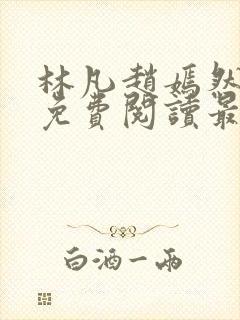 林凡趙嫣然
免費閱讀最
白酒一兩